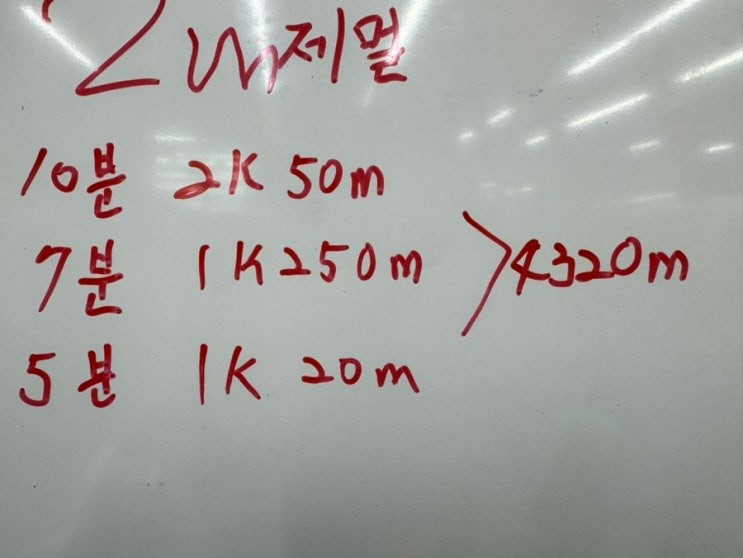 2m제멀
10분 2K 50m
7분 1K 250m
5분 1K 20m
>4320m